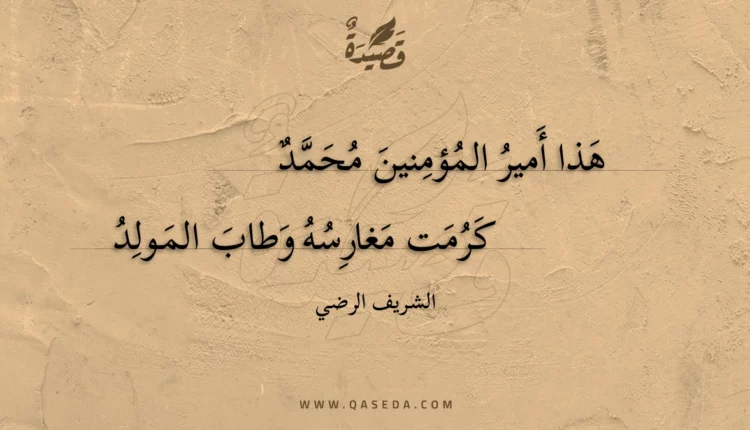 قَصِيدَةٌ
هَذا أَميرُ المُؤمِنينَ مُحَمَّدٌ
كَرُمَت مَغارِسُهُ وَطابَ المَولِدُ
الشريف الرضي
WWW.QASEDA.COM